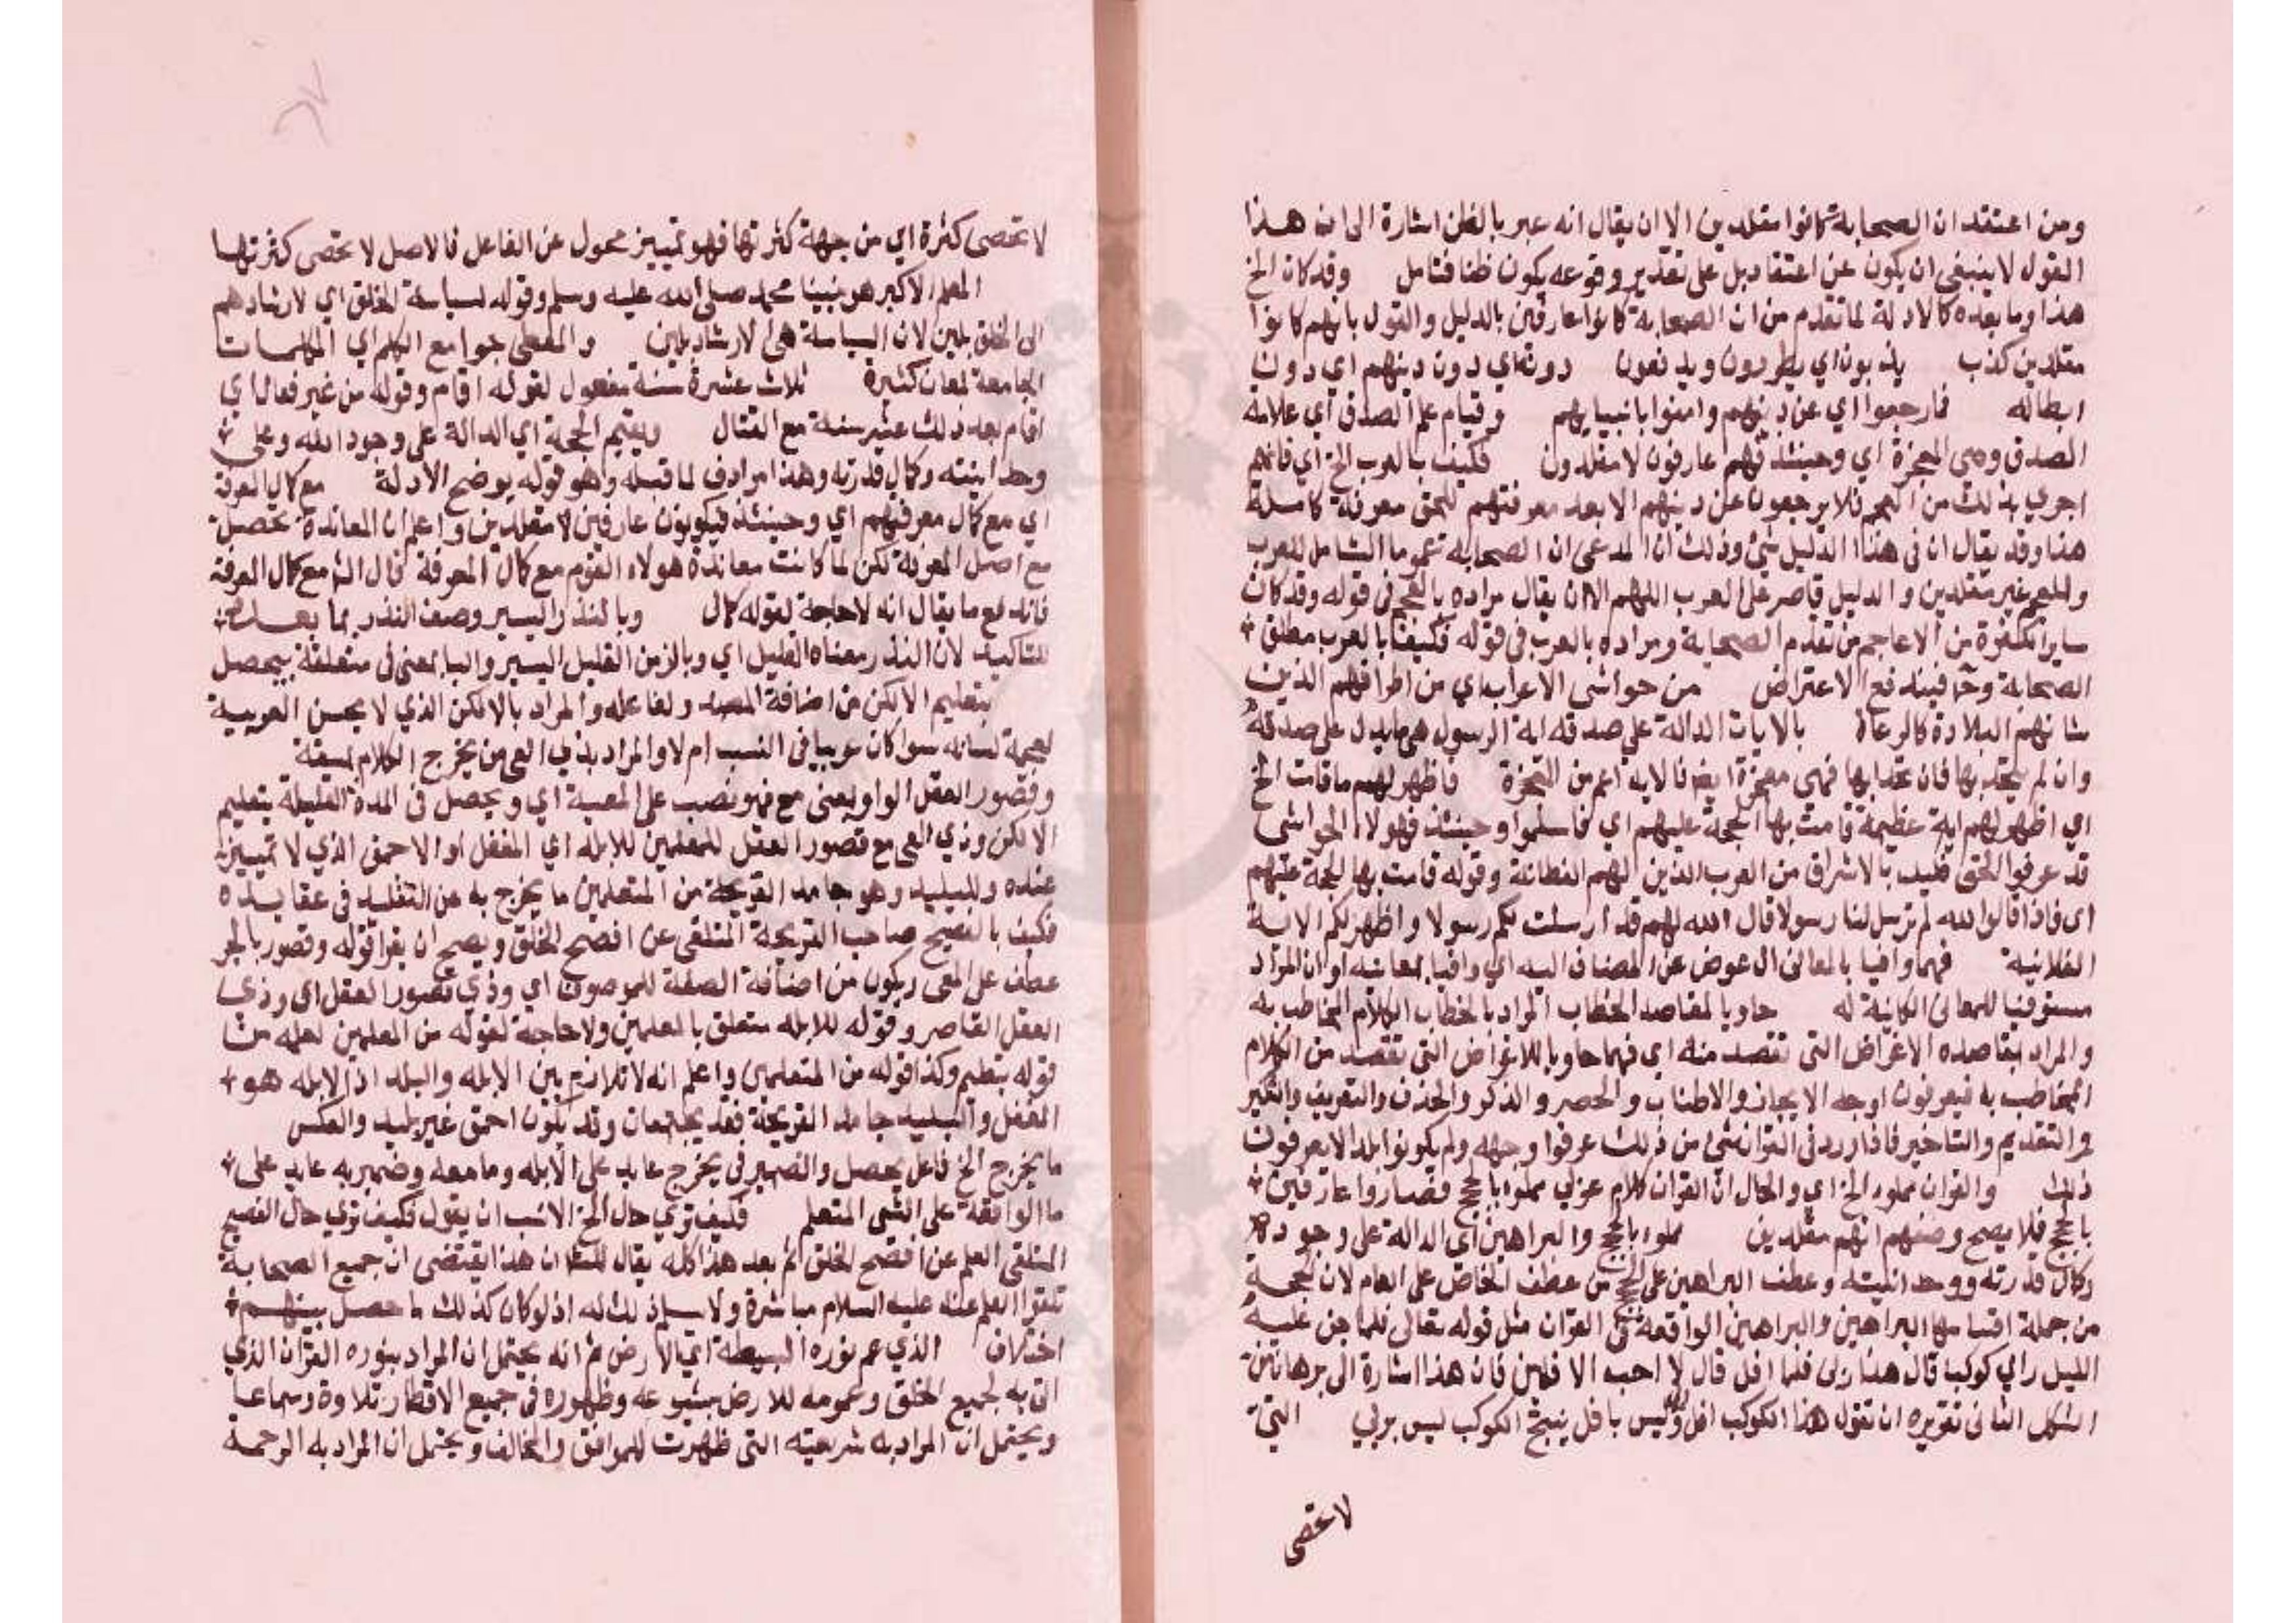 ومن اعتقد ان الصحابة كانوا مقلدين الا ان يقال انه عبر بالظن اشارة الى ان هذا
القول لا ينبغي ان يكون عن اعتقاد بل على تقدير وقوعه يكون ظنا فتامل وقد كان الخ
هذا وما بعده كالادلة لما تقدم من ان الصحابة كانوا عارفين بالدليل والقول بانهم كانوا
مقلدين كذب يذبون اي يطردون ويدفعون دونه اي دون دينهم اي دون
ابطاله فما رجعوا اي عن دينهم وامنوا بانبيايهم وقيام علم الصدق اي علامة
الصدق وهي المعجزة اي وحينئذ فهم عارفون لا مقلدون فكيف بالعرب الخ اي فانهم
احري بذلك من العجم فلا يرجعون عن دينهم الا بعد معرفتهم للحق معرفة كاملة
هذا وقد يقال ان في هذا الدليل شئ وذلك ان المدعى ان الصحابة عموما الشامل للعرب
والعجم غير مقلدين والدليل قاصر على العرب اللهم الا ان يقال مراده بالعجم في قوله وقد كان
ساير الكفرة من الاعاجم من تقدم الصحابة ومراده بالعرب في قوله فكيف بالعرب مطلق
الصحابة وح فيندفع الاعتراض من حواشى الاعراب اي من اطرافهم الذين
شانهم البلادة كالرعاة بالايات الدالة على صدقه اية الرسول هي ما يدل على صدقه
وان لم يتحد بها فان تحدا بها فهي معجزة ايض فالاية اعم من المعجزة فاظهر لهم ما قامت الخ
اي اظهر لهم اية عظيمة قامت بها الحجة عليهم اي فاسلموا وحينئذ فهولاء الحواشى
قد عرفوا الحق فكيف بالاشراف من العرب الذين لهم الفطانة وقوله قامت بها الحجة عليهم
اي فاذا قالوا الله لم ترسل لنا رسولا قال الله لهم قد ارسلت لكم رسولا واظهر لكم الاية
الفلانية فهما وافيا بالمعانى ال عوض عن المضاف اليه اي وافيا بمعانيه او ان المراد
مستوفيا للمعانى الكاينة له حاويا لمقاصد الخطاب المراد بالخطاب الكلام المخاطب به
والمراد بمقاصده الاغراض التي تقصد منه اي فهما حاويا للاغراض التي تقصد من الكلام
المخاطب به فيعرفون اوجه الايجاز والاطناب والحصر والذكر والحذف والتعريف والتنكير
والتقديم والتاخير فاذا ورد في القران شئ من ذلك عرفوا وجهه ولم يكونوا بلدا لا يعرفون
ذلك والقران مملوء الخ اي والحال ان القران كلام عربي مملوء بالحجج فصاروا عارفين
بالحجج فلا يصح وصفهم انهم مقلدين مملوء بالحجج والبراهين اي الدالة على وجوده
وكمال قدرته ووحدانيته وعطف البراهين على الحجج من عطف الخاص على العام لان الحجة
من جملة اقسامها البراهين والبراهين الواقعة في القران مثل قوله تعالى فلما جن عليه
الليل راي كوكبا قال هذا ربى فلما افل قال لا احب الافلين فان هذا اشارة الى برهان من
الشكل الثانى تقريره ان تقول هذا الكوكب افل وليس بافل ينتج الكوكب ليس بربي التي
لا تحصى
لا تحصى كثرة اي من جهة كثرتها فهو تمييز محول عن الفاعل فالاصل لا تحصى كثرتها
المعلم الاكبر هو نبينا محمد صلى الله عليه وسلم وقوله لسياسة الخلق اي لارشادهم
والمعطى جوامع الكلم اي الكلمات
الجامعة لمعان كثيرة ثلاث عشرة سنة مفعول لقوله اقام وقوله من غير قتال اي
اقام بعد ذلك عشر سنة مع القتال ويقيم الحجة اي الدالة على وجود الله وعلى
وحدانيته وكمال قدرته وهذا مرادف لما قبله وهو قوله يوضح الادلة مع كمال المعرفة
اي مع كمال معرفتهم اي وحينئذ فيكونون عارفين لا مقلدين واعلم ان المعاندة تحصل
مع اصل المعرفة لكن لما كانت معاندة هولاء القوم مع كمال المعرفة قال الش مع كمال المعرفة
فاندفع ما يقال انه لا حاجة لقوله كمال وبالنذر اليسير وصف النذر بما بعده
للتاكيد لان النذر معناه القليل اي وبالزمن القليل اليسير والبا بمعنى في متعلقة بيحصل
بتعليم الالكن من اضافة المصدر لفاعله والمراد بالالكن الذي لا يحسن العربية
لعجمة لسانه سوا كان عربيا في النسب ام لا والمراد بذي العي من يخرج الكلام بمشقة
وقصور العقل الواو بمعنى مع فهو نصب على المعية اي ويحصل في المدة القليلة بتعليم
الالكن وذي العي مع قصور العقل للمعلمين للابله اي المغفل او الاحمق الذي لا تمييز
عنده وللبليد وهو جامد القريحة من المتعلمين ما يخرج به عن التقليد في عقايده
فكيف بالفصيح صاحب القريحة المتلقى عن افصح الخلق ويصح ان يقرا قوله وقصور بالجر
عطف على العى ويكون من اضافة الصفة للموصوف اي وذي قصور العقل اي وذي
العقل القاصر وقوله للابله متعلق بالمعلمين ولا حاجة لقوله من المعلمين لعلمه من
قوله بتعليم وكذا قوله من المتعلمين واعلم انه لا تلازم بين الابله والبلد اذ الابله هو
المغفل والبليد جامد القريحة فقد يجتمعان وقد يكون احمق غير بليد والعكس
ما يخرج الخ فاعل يحصل والضمير في يخرج عايد على الابله وما معه وضمير به عايد على
ما الواقعة على الشى المتعلم فكيف تري حال الخ الانسب ان يقول فكيف تري حال الفصيح
المتلقى العلم عن افصح الخلق ثم بعد هذا كله يقال للش ان هذا يقتضى ان جميع الصحابة
تلقوا العلم عنه عليه السلام مباشرة ولا يسلم ذلك له اذ لو كان كذلك ما حصل بينهم
اختلاف الذي عم نوره البسيطة اي الارض ثم انه يحتمل ان المراد بنوره القران الذي
اتى به لجميع الخلق وعمومه للارض بشيوعه وظهوره في جميع الاقطار تلاوة وسماعا
ويحتمل ان المراد به شريعته التي ظهرت للموافق والمخالف ويحتمل ان المراد به الرحمة